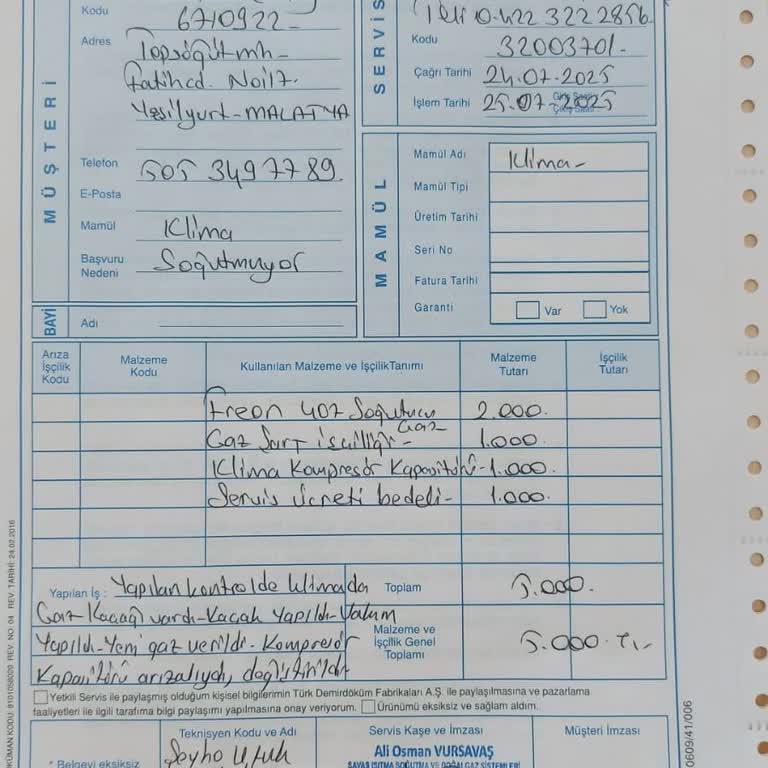 Kodu 6710922-
Adres Topsöğüt mh-
Fatihcd. No:17.
Yeşilyurt-MALATYA
Telefon 505 3497789.
E-Posta
Mamül Klima
Başvuru Nedeni Soğutmuyor
MÜŞTERİ
BAYİ
Adı
SERVİS
Tel: 0.422 322 2856.
Kodu 32003701-
Çağrı Tarihi 24.07.2025
İşlem Tarihi 25.07-2025
MAMÜL
Mamül Adı Klima-
Mamül Tipi
Üretim Tarihi
Seri No
Fatura Tarihi
Garanti Var Yok
Arıza İşçilik Kodu Malzeme Kodu Kullanılan Malzeme ve İşçilikTanımı Malzeme Tutarı İşçilik Tutarı
Freon 407 Soğutucu Gaz 2.000.
Gaz Şarj işçiliği- 1.000.
Klima Kompresör Kapasitörü-1.000.
Servis ücreti bedeli- 1.000.
Yapılan İş : Yapılan kontrolde klimada
Gaz Kaçağı vardı-Kaçak Yapıldı-Vakum
Yapıldı-Yeni gaz verildi-Kompresör
Kapasitörü arızalıydı, değiştirildi
Toplam 5.000.
Malzeme ve İşçilik Genel Toplamı 5.000.TL-
Yetkili Servis ile paylaşmış olduğum kişisel bilgilerimin Türk Demirdöküm Fabrikaları A.Ş. ile paylaşılmasına ve pazarlama
faaliyetleri ile ilgili tarafıma bilgi paylaşımı yapılmasına onay veriyorum. Ürünümü eksiksiz ve sağlam aldım.
* Belgeyi eksiksiz
Teknisyen Kodu ve Adı
Servis Kaşe ve İmzası
Ali Osman VURSAVAŞ
SAVAŞ ISITMA SOĞUTMA VE DOĞALGAZ SİSTEMLERİ
Müşteri İmzası
DOKÜMAN KODU: 8101058020 REV. NO: 04 REV. TARİHİ: 24.02.2016
0609/41/006